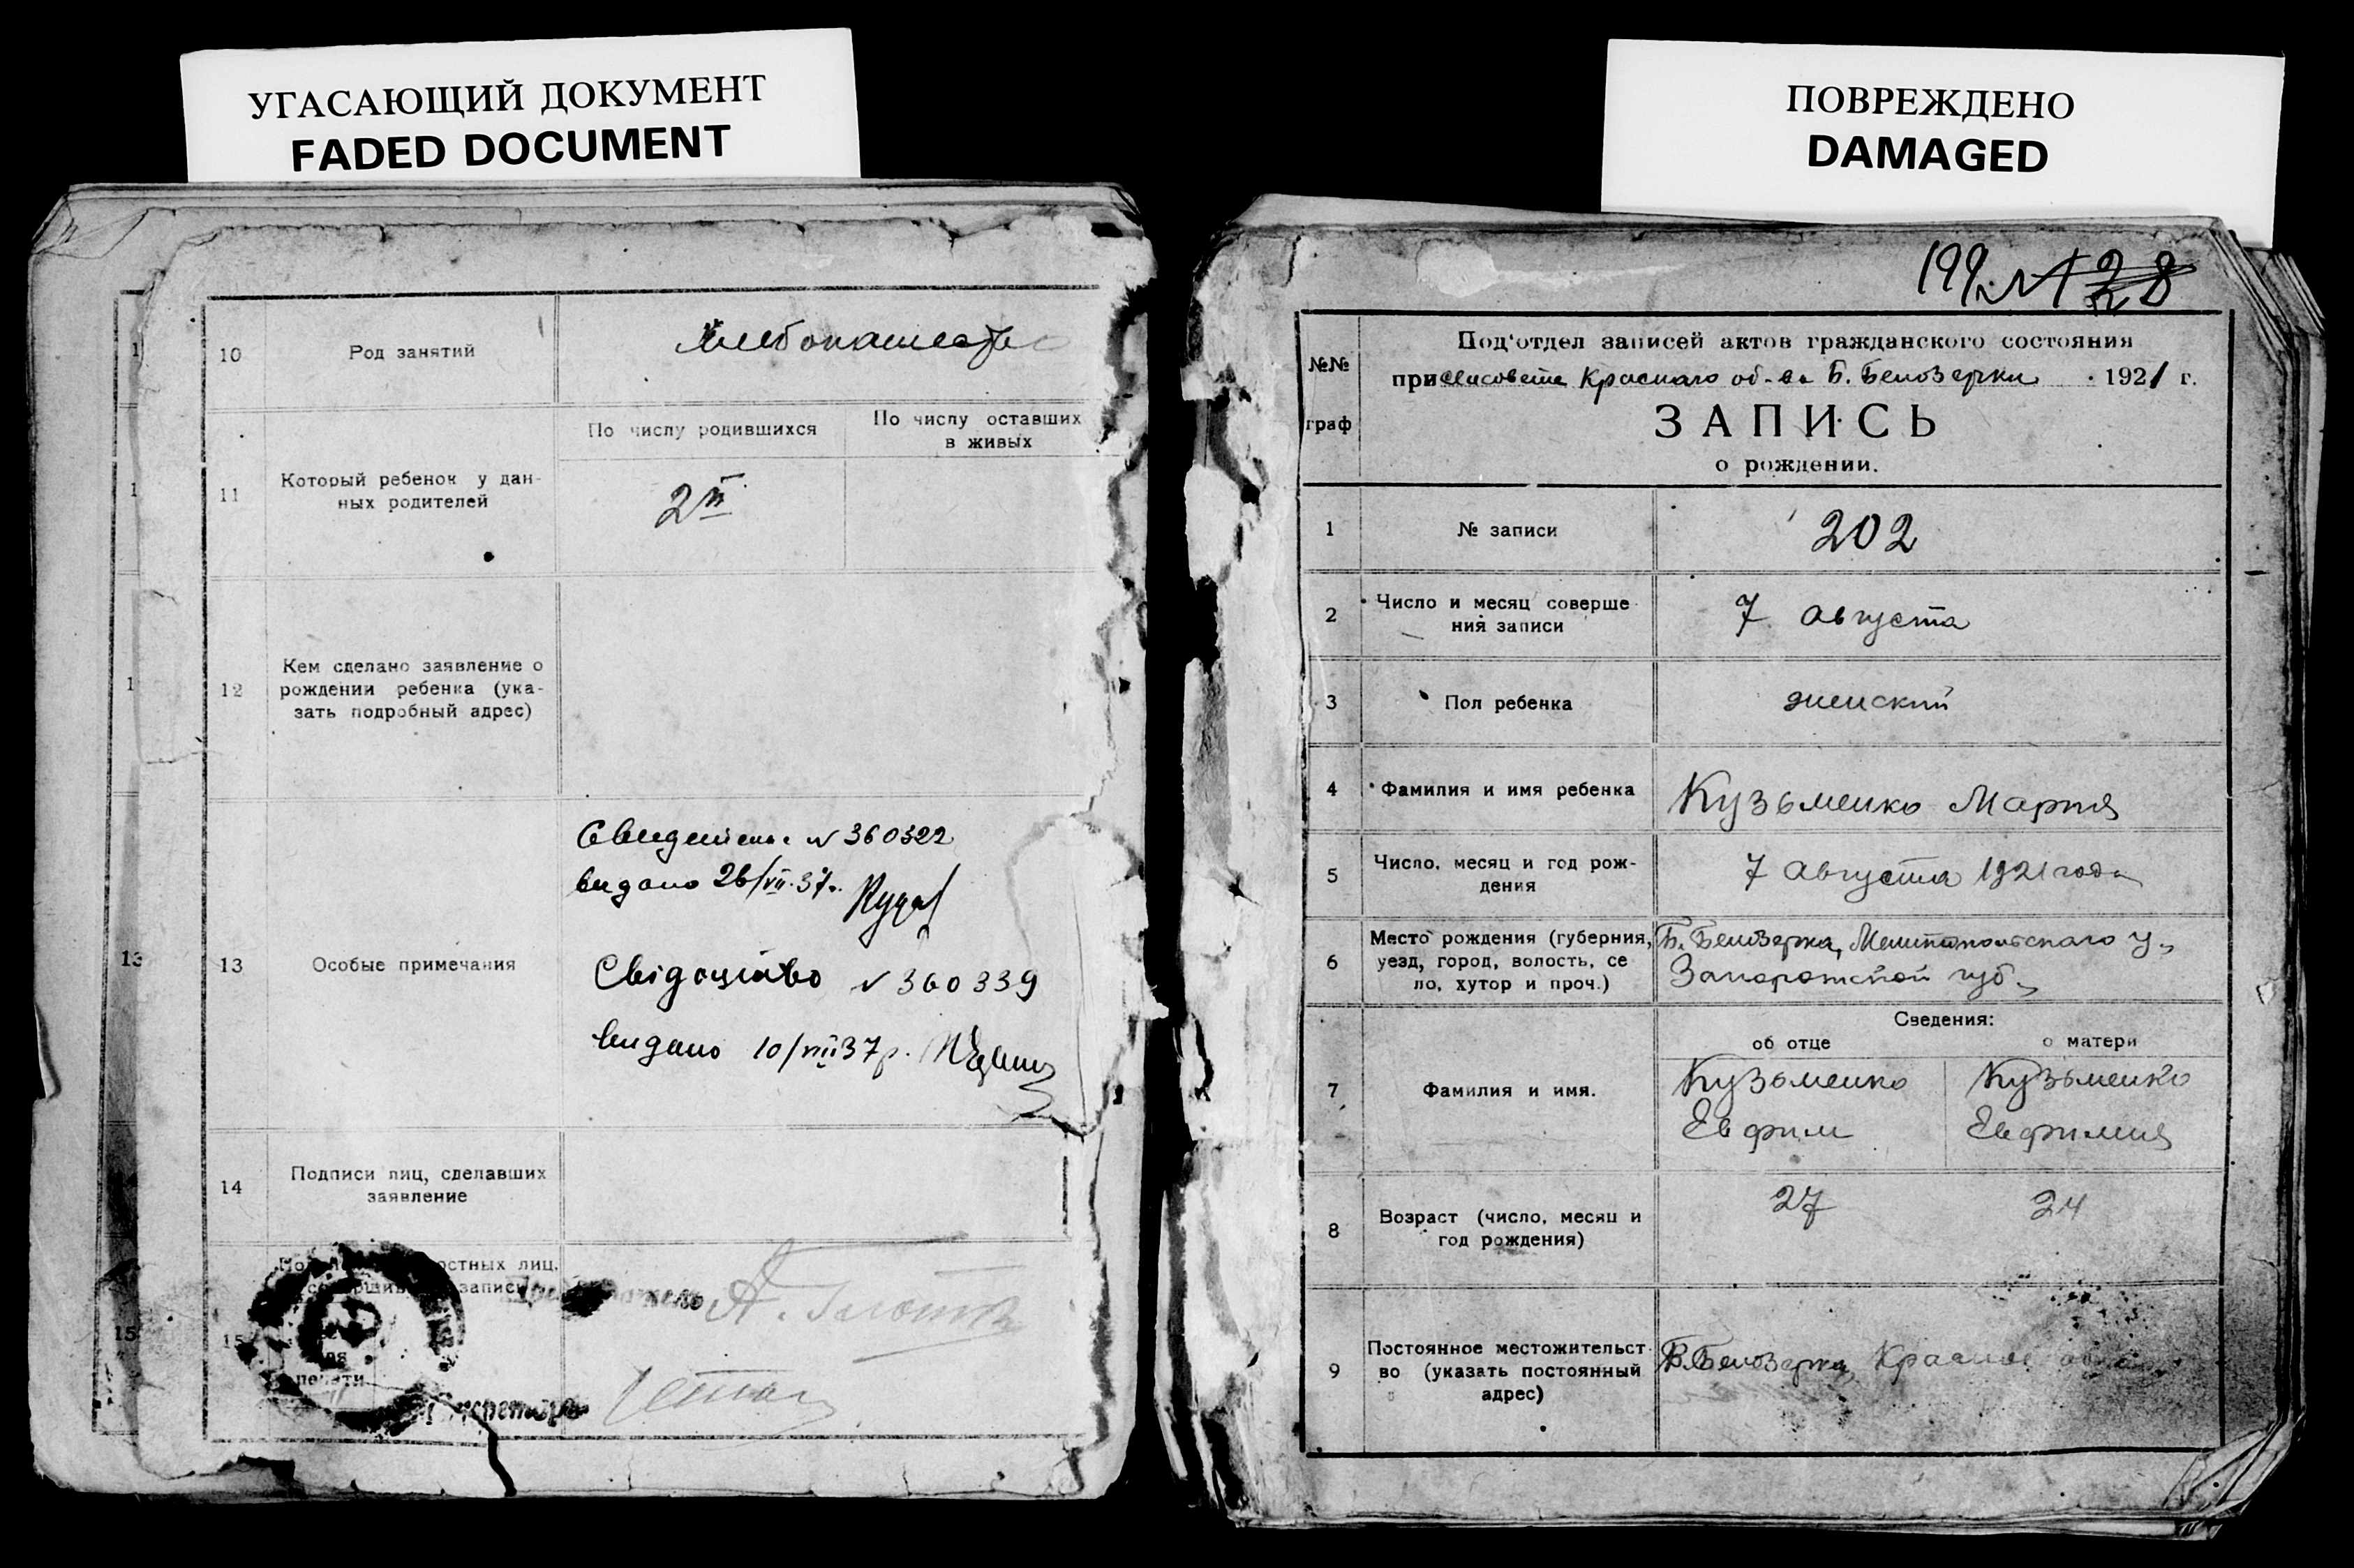 УГАСАЮЩИЙ ДОКУМЕНТ
FADED DOCUMENT
10
Род занятий
Хлебопашество
11
Который ребенок у дан-
ных родителей
По числу родившихся
По числу оставших
в живых
2й
12
Кем сделано заявление о
рождении ребенка (ука-
зать подробный адрес)
13
Особые примечания
№ 360322
видано 26/VII.37р.
Свідоцтво № 360339
видано 10/VIII 37р.
14
Подписи лиц, сделавших
заявление
15
остных лиц,
записи
печати
А.
Секретарь
ПОВРЕЖДЕНО
DAMAGED
199 № 28
№№
граф
Под'отдел записей актов гражданского состояния
при сельсовете Краснаго об-ва Б. Белозерки 1921 г.
ЗАПИСЬ
о рождении.
1
№ записи
202
2
Число и месяц соверше
ния записи
7 августа
3
Пол ребенка
женский
4
Фамилия и имя ребенка
Кузьменко Мария
5
Число, месяц и год рож-
дения
7 августа 1921 года
6
Место рождения (губерния,
уезд, город, волость, се
ло, хутор и проч.)
Б. Белозерка, Мелитопольскаго у.,
Запорожской губ.,
7
Фамилия и имя.
Сведения:
об отце
о матери
Кузьменко
Евфим
Кузьменко
Евфимия
8
Возраст (число, месяц и
год рождения)
27
24
9
Постоянное местожительст
во (указать постоянный
адрес)
Б. Белозерка,